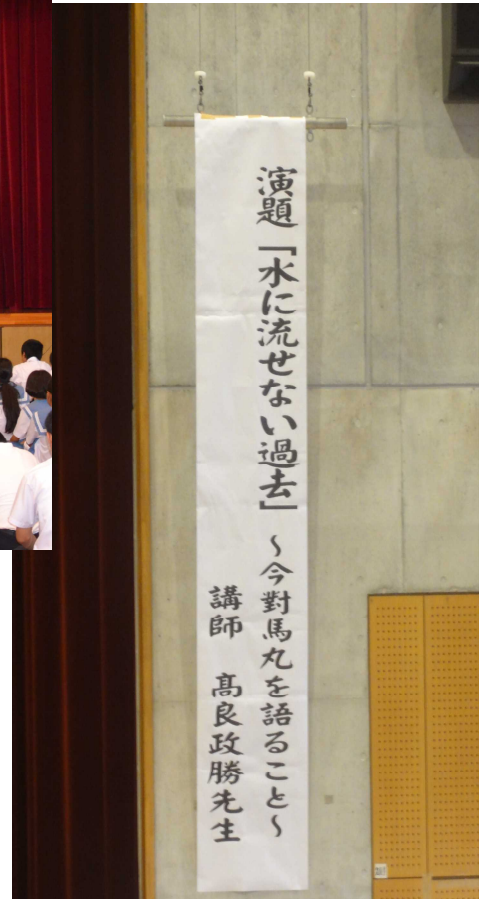 演題「水に流せない過去」～今對馬丸を語ること～
講師　髙良政勝先生